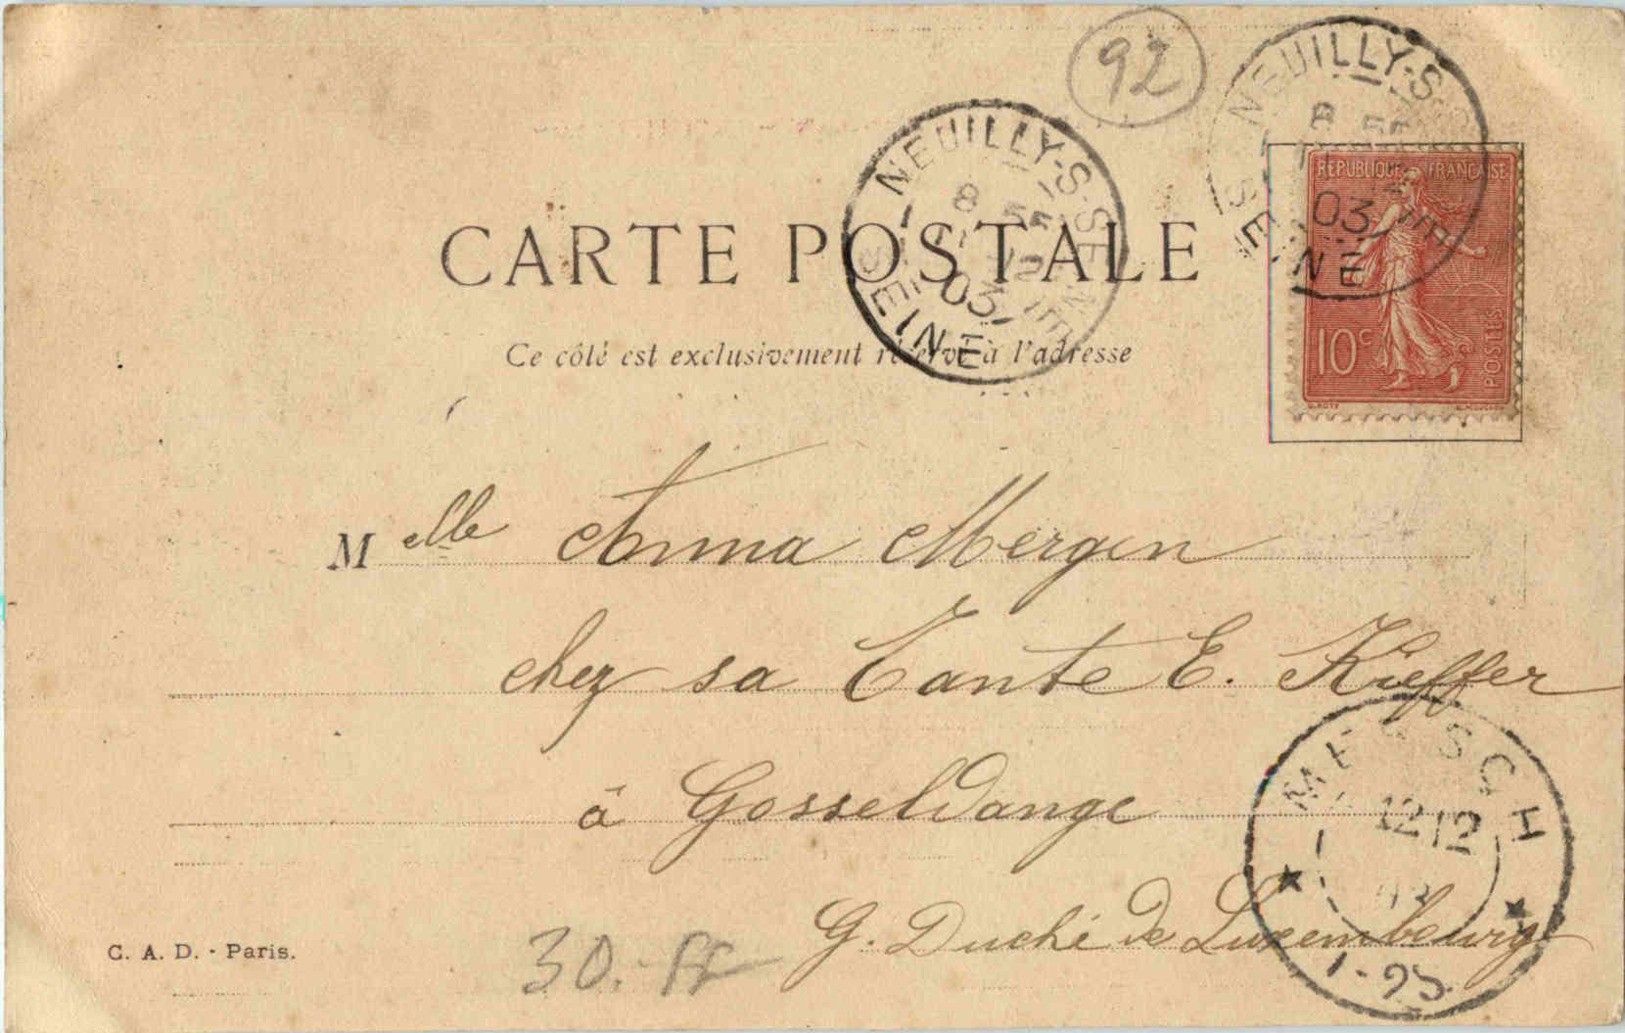 92
NEUILLY-S-SEINE
8 55
11
03
SEINE
NEUILLY-S-
8 55
03
SEINE
REPUBLIQUE FRANCAISE
10c
POSTES
CARTE POSTALE
Ce côté est exclusivement réservé à l'adresse
Melle Anna Mergen
chez sa Tante E. Kieffer
à Gosseldange
G. Duché de Luxembourg
MERSCH
12 12
03
C. A. D. - Paris.
30.-